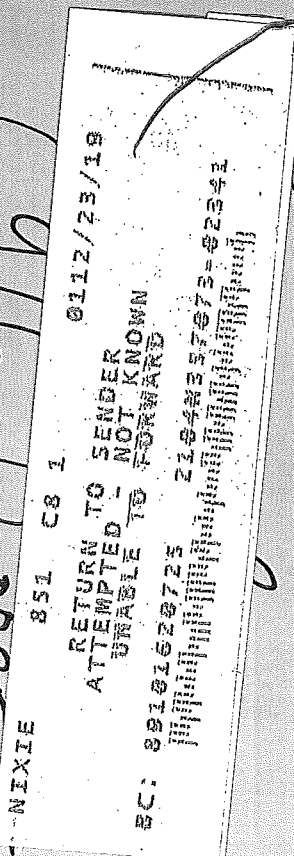 NIXIE 851 C8 1 0112/23/19
RETURN TO SENDER
ATTEMPTED - NOT KNOWN
UNABLE TO FORWARD
BC: 89101628725